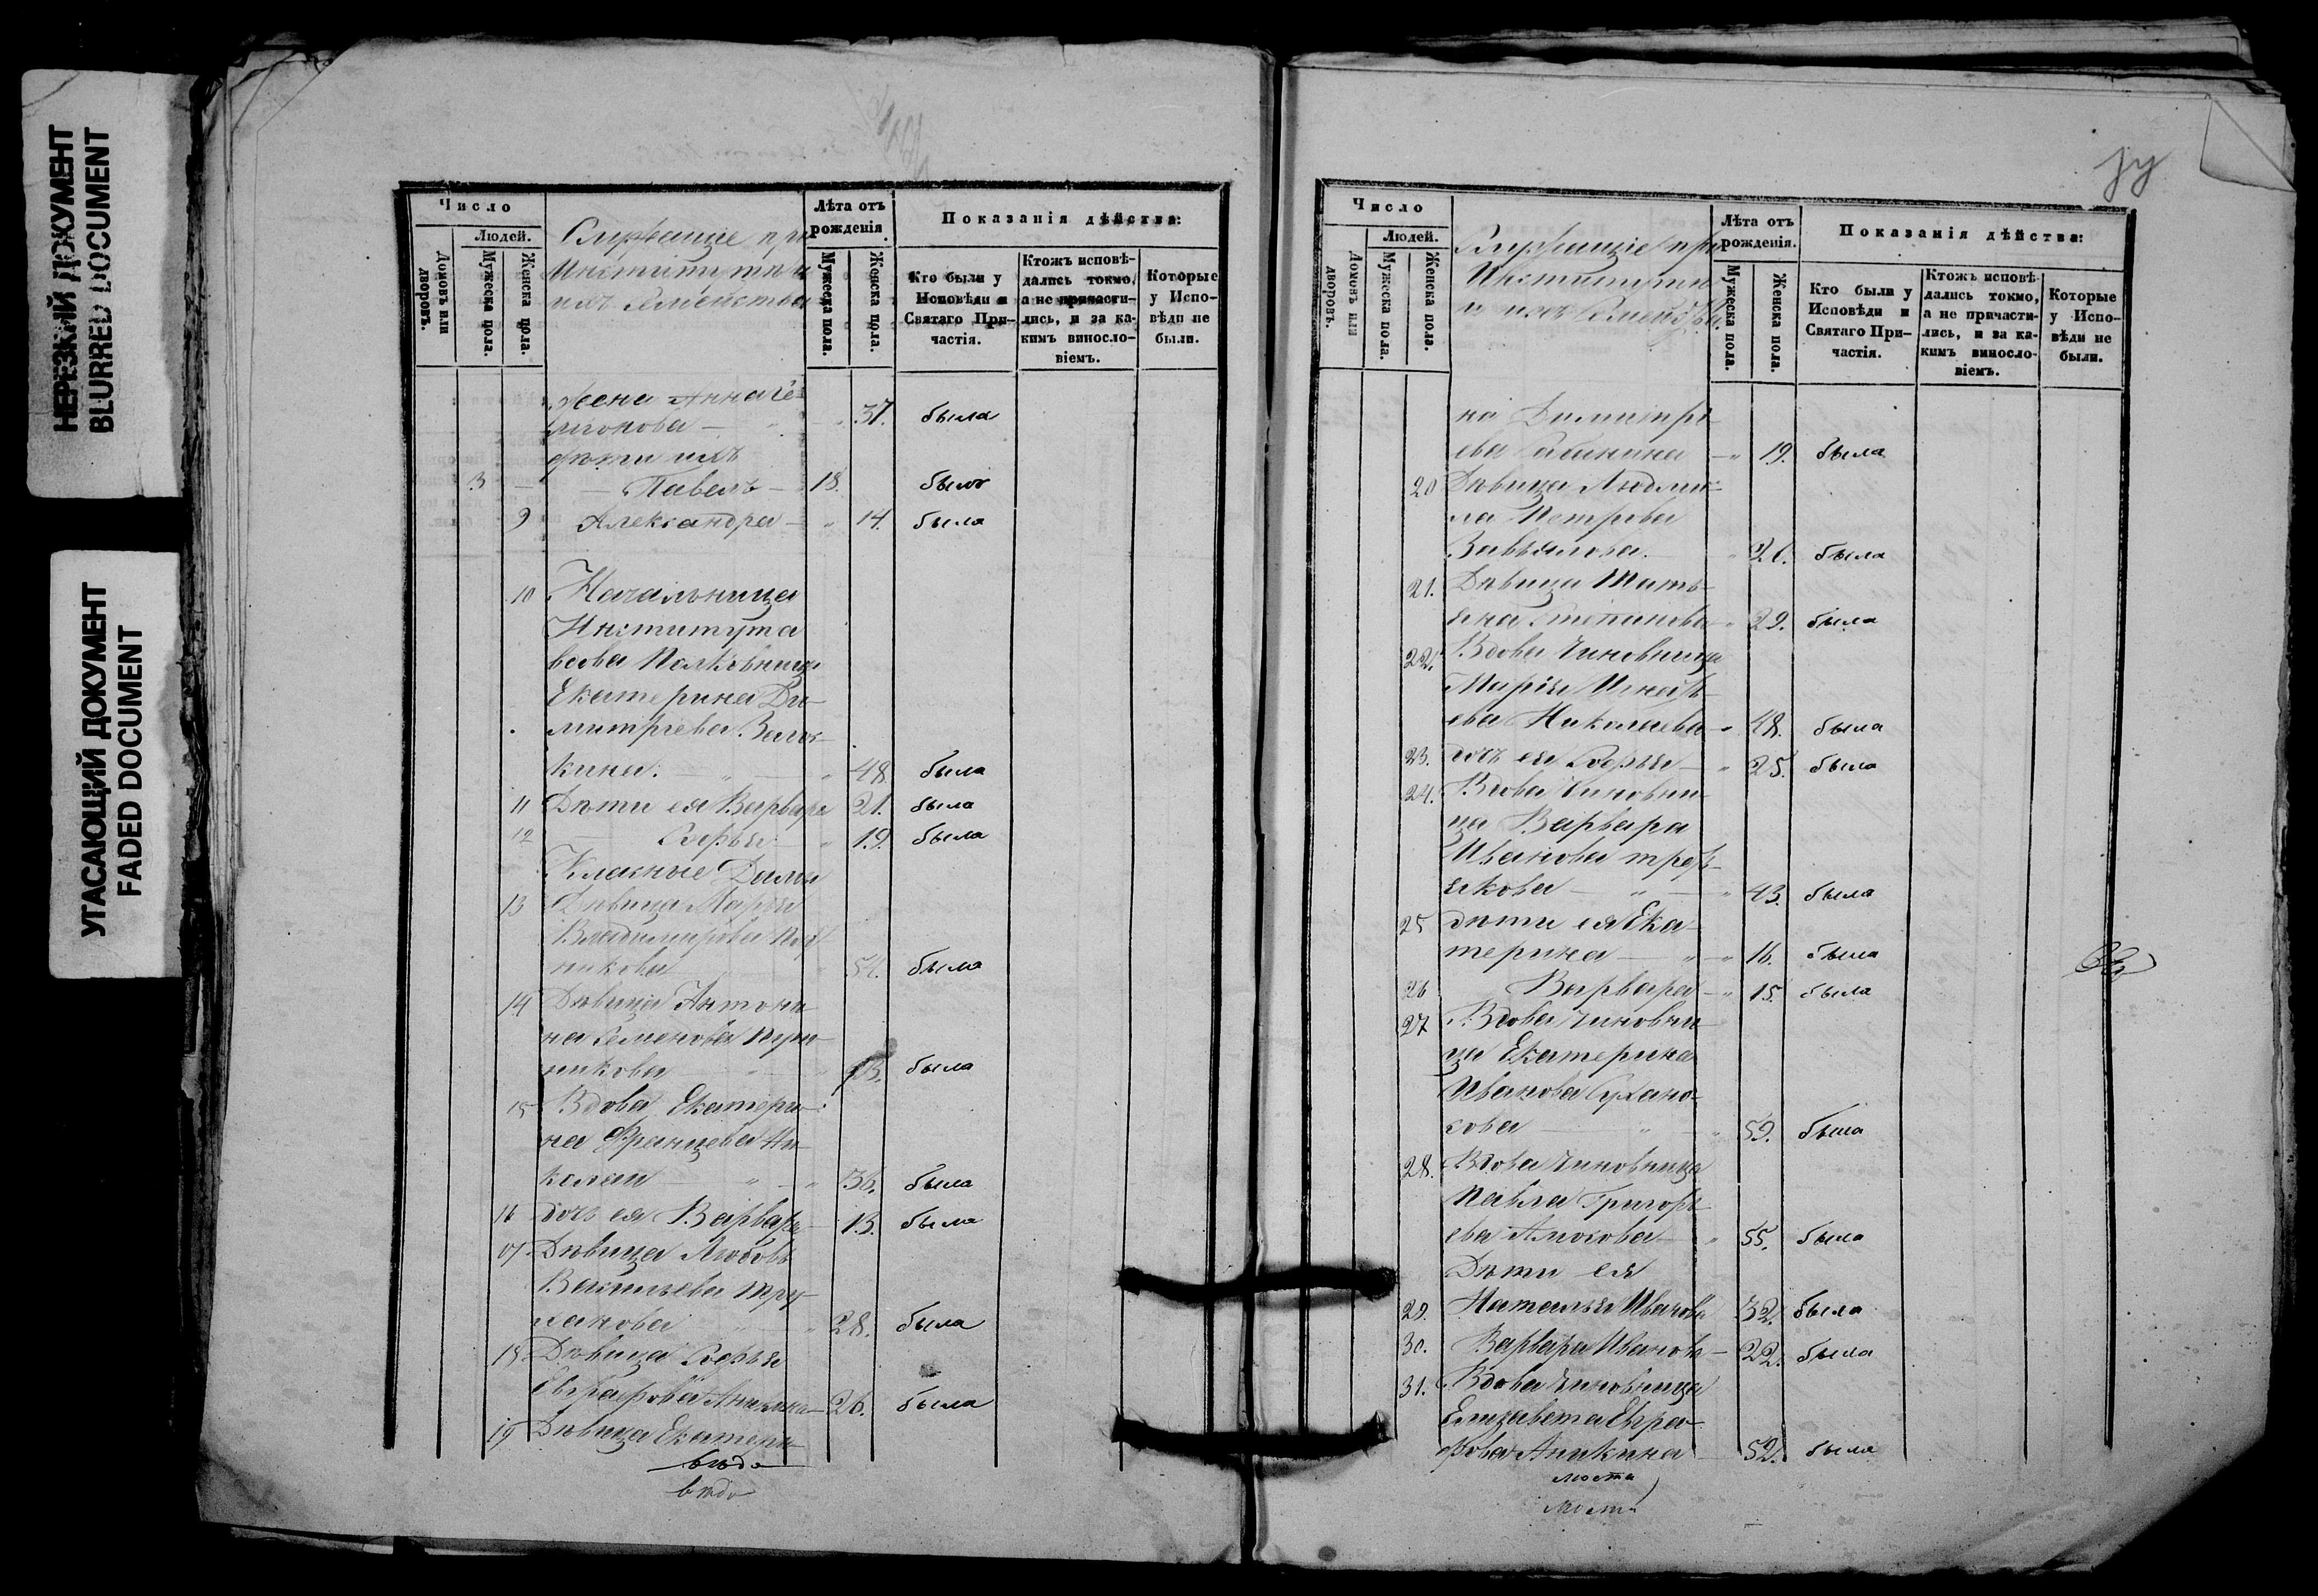 НЕРЕЗКИЙ ДОКУМЕНТ
BLURRED DOCUMENT
УГАСАЮЩИЙ ДОКУМЕНТ
FADED DOCUMENT
Число
Людей.
Домовъ или дворовъ.
Мужеска пола.
Женска пола.
Служащіе при
Институтѣ и
ихъ Семейства
Лѣта отъ рожденія.
Мужеска пола.
Женска пола.
Показанія дѣйства:
Кто были у Исповѣди и Святаго При-частія.
Ктожъ исповѣ-дались токмо, а не причасти-лись, и за ка-кимъ винослo-віемъ.
Которые у Испо-вѣди не были.
жена Анна
37. была
дѣти ихъ
3 — Павелъ — 18. былъ
9 Александра — 14. была
10 Начальница
Института
вдова Полковница
Екатерина Ди-
митріева
кина. 48 была
11 Дѣти ея Варвара 21. была
12 Софья 19. была
Класные Дамы
13 Дѣвица Марья
Владимирова
никова 54. была
14 Дѣвица Антони-
на Семенова
никова была
15 Вдова Екатери-
на Францева Ни-
колаи 36. была
16 Дочь ея Варвара 13. была
17 Дѣвица Любовь
Васильева
28. была
18 Дѣвица Софья
Евграфова Аникина 26. была
19 Дѣвица Екатери-
вѣдо
вѣдо
Число
Людей.
Домовъ или дворовъ.
Мужеска пола.
Женска пола.
Служащіе при
Институтѣ
и ихъ Семейства.
Лѣта отъ рожденія.
Мужеска пола.
Женска пола.
Показанія дѣйства:
Кто были у Исповѣди и Святаго При-частія.
Ктожъ исповѣ-дались токмо, а не причасти-лись, и за ка-кимъ винослo-віемъ.
Которые у Испо-вѣди не были.
на Димитрі-
ева 19. была
20 Дѣвица Людми-
ла Петрова
Завьялова. 26. была
21. Дѣвица Тать-
яна Степанова 29. была
22. Вдова Чиновница
Марія Игнать-
ева Николаева 48. была
23. дочь ея Софья 25. была
24. Вдова Чиновни-
ца Варвара
Иванова Треть-
якова 43. была
25 дѣти ея Ека-
терина 16. была
26 Варвара 15. была
27 Вдова чиновни-
ца Екатерина
Иванова
сова 59. была
28. Вдова Чиновница
Павла Григорь-
ева 55. была
Дѣти ея
29. Наталья Иванова 32. была
30. Варвара Иванова 22. была
31. Вдова Чиновница
Елизавета Евгра-
фова Аникина 52. была
мость
мость